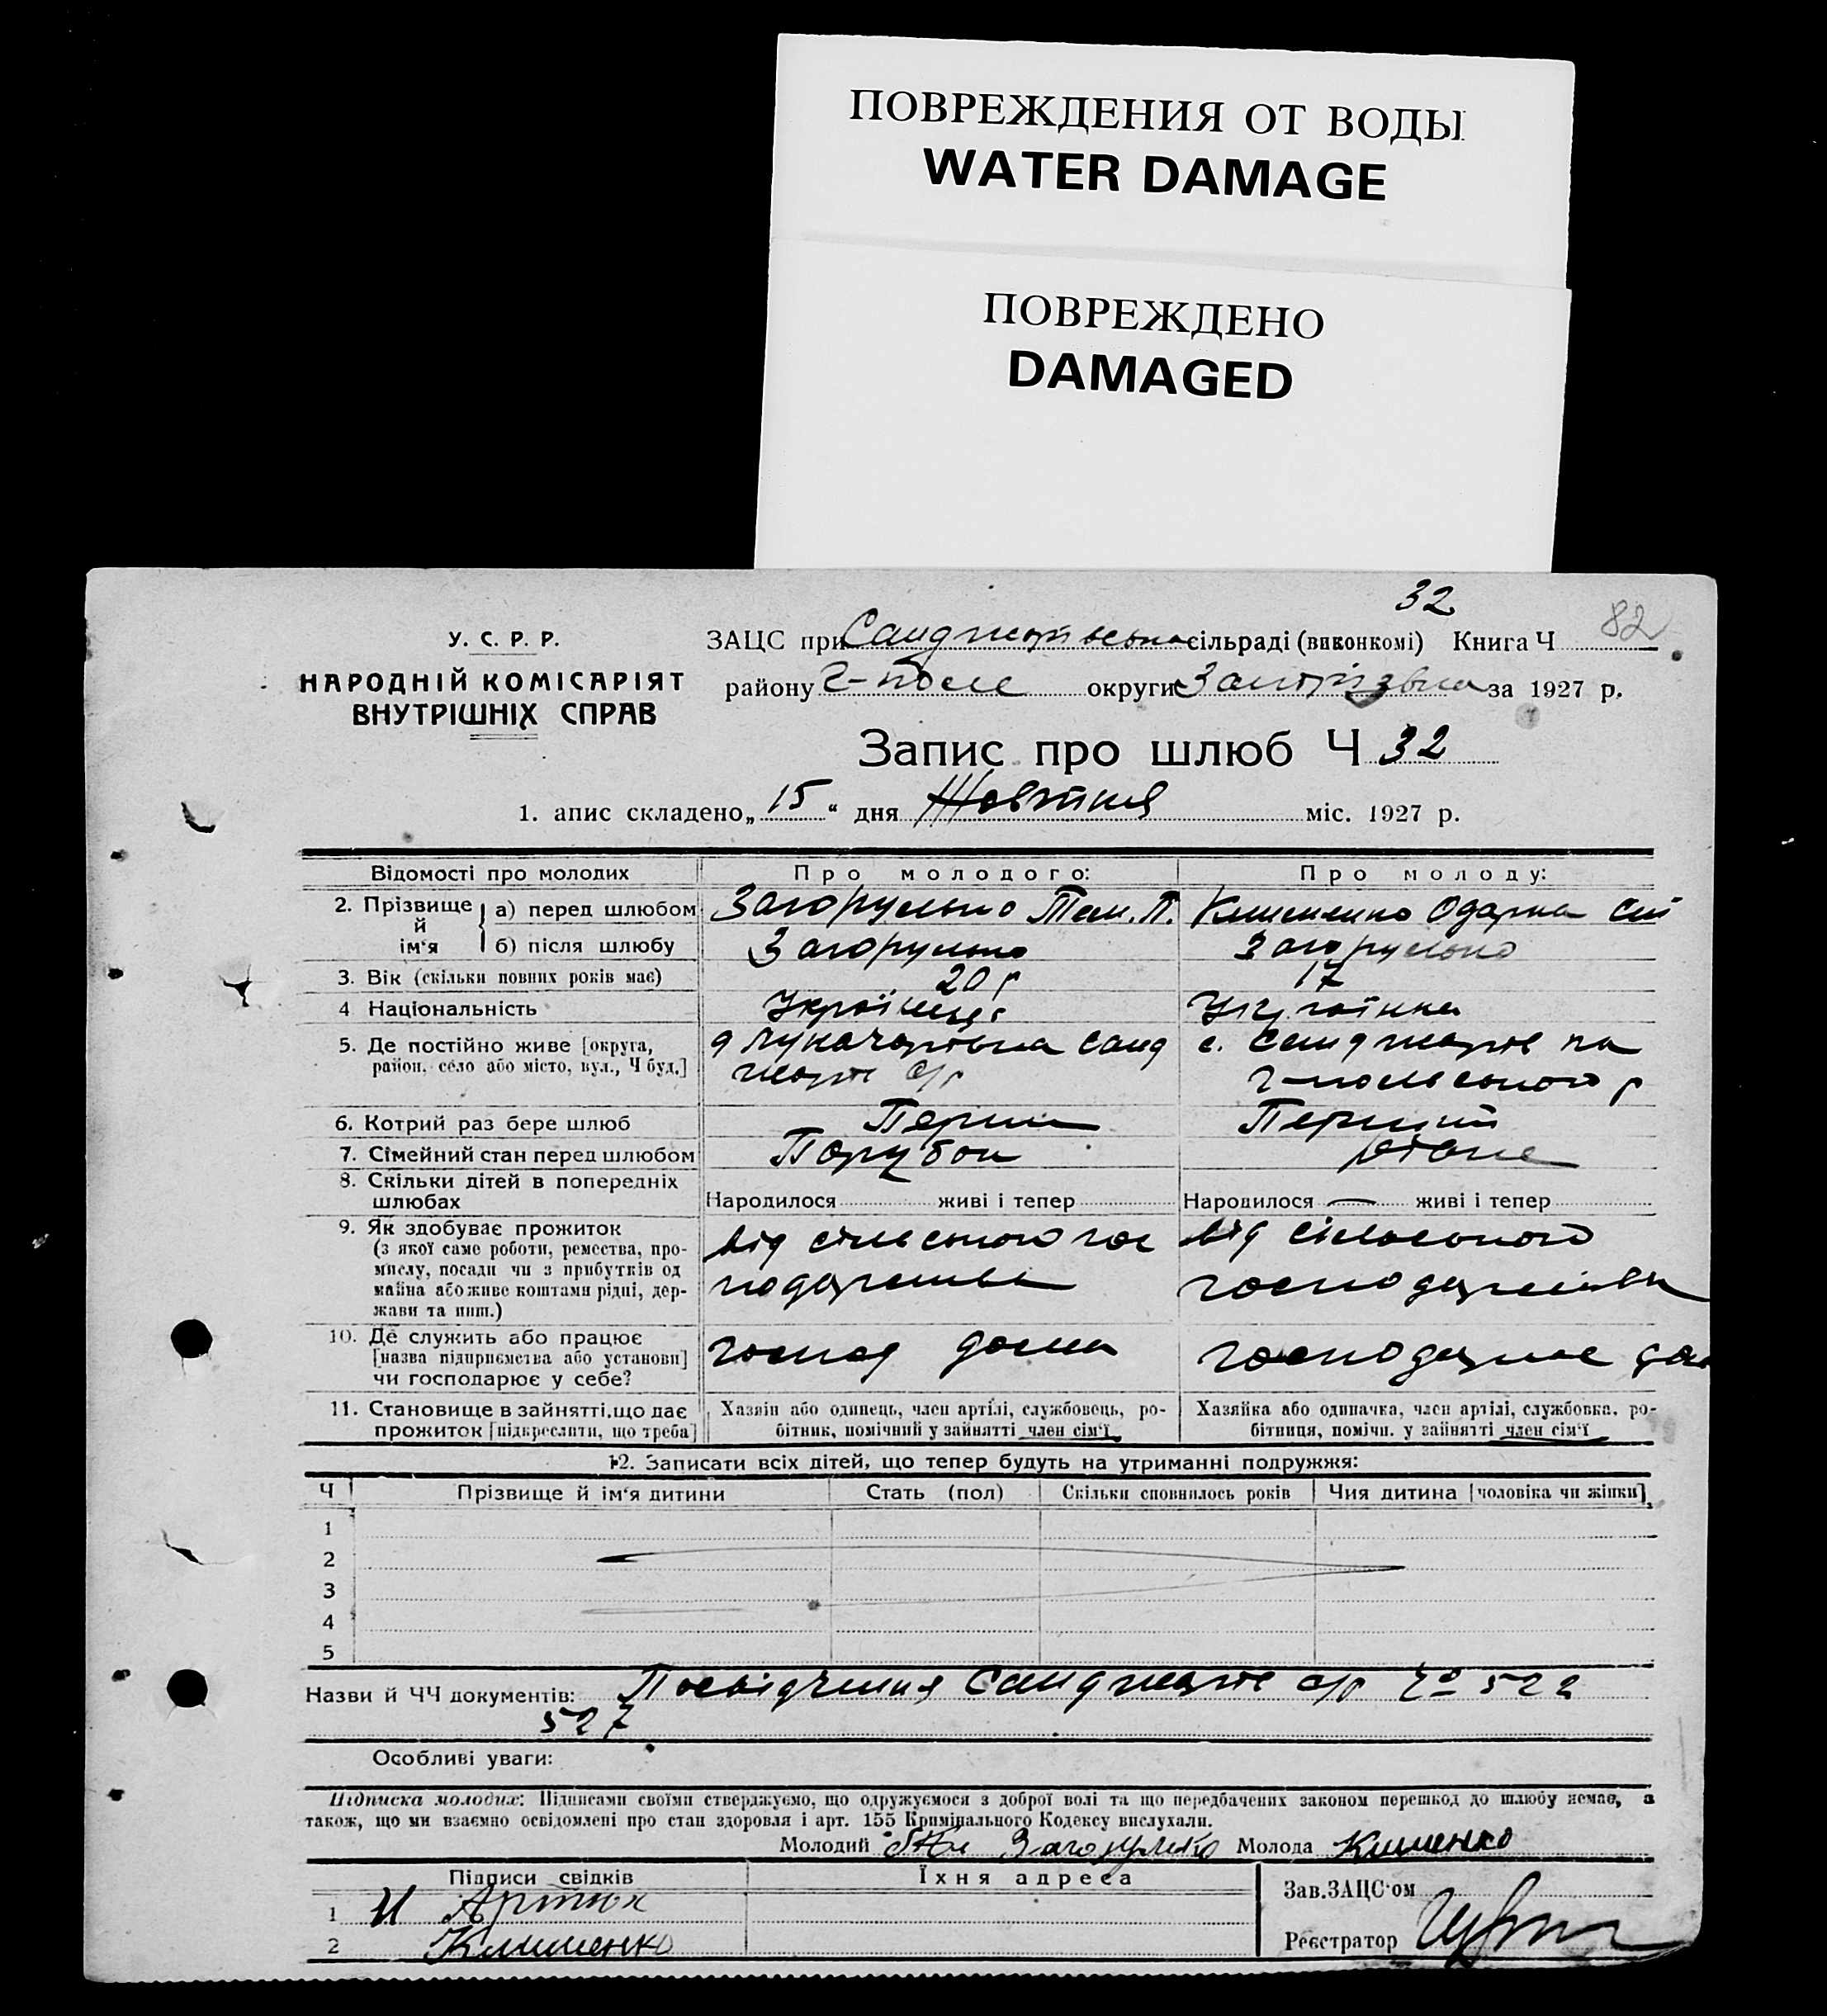 ПОВРЕЖДЕНИЯ ОТ ВОДЫ
WATER DAMAGE
ПОВРЕЖДЕНО
DAMAGED
32
82
У. С. Р. Р.
НАРОДНІЙ КОМІСАРІЯТ
ВНУТРІШНІХ СПРАВ
ЗАЦС при сільраді (виконкомі) Книга Ч
району Г-поле округи за 1927 р.
Запис про шлюб Ч 32
1. апис складено „ 15 " дня Жовтня міс. 1927 р.
Відомості про молодих Про молодого: Про молоду:
2. Прізвище й ім'я а) перед шлюбом Загорулько П. Клименко Одарка
б) після шлюбу Загорулько Загорулько
3. Вік (скільки повних років має) 20 р 17
4 Національність Українець Українка
5. Де постійно живе [округа, район, село або місто, вул., Ч буд.] с/р с. Г-польського р
6. Котрий раз бере шлюб Перший
7. Сімейний стан перед шлюбом Парубок
8. Скільки дітей в попередніх шлюбах Народилося живі і тепер Народилося — живі і тепер
9. Як здобуває прожиток (з якої саме роботи, ремества, промислу, посади чи з прибутків од майна або живе коштами рідні, держави та инш.) від сільського господарства від сільського господарства
10. Де служить або працює [назва підприємства або установи] чи господарює у себе? господ дома господарює
11. Становище в зайнятті, що дає прожиток [підкреслити, що треба] Хазяїн або одинець, член артілі, службовець, робітник, помічний у зайнятті член сім'ї Хазяйка або одиначка, член артілі, службовка, робітниця, помічн. у зайнятті член сім'ї
12. Записати всіх дітей, що тепер будуть на утриманні подружжя:
Ч Прізвище й ім'я дитини Стать (пол) Скільки сповнилось років Чия дитина [чоловіка чи жінки]
1
2
3
4
5
Назви й ЧЧ документів: Посвідчення с/р 522
527
Особливі уваги:
Підписка молодих: Підписами своїми стверджуємо, що одружуємося з доброї волі та що передбачених законом перешкод до шлюбу немає, а
також, що ми взаємно освідомлені про стан здоровля і арт. 155 Кримінального Кодексу вислухали.
Молодий Загорулько Молода Клименко
Підписи свідків Їхня адреса Зав. ЗАЦС'ом
1 Артюх
2 Клименко Реєстратор